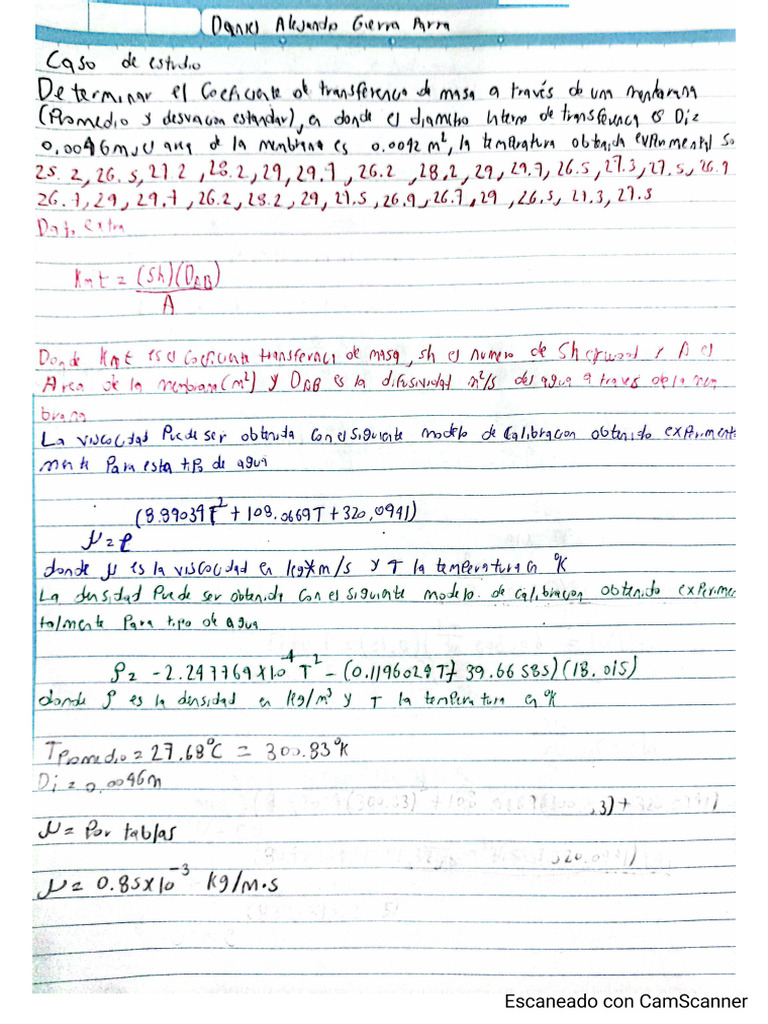 Daniel Alejandro Guerra Parra
Caso de estudio
Determinar el Coeficiente de transferencia de masa a través de una membrana
(Promedio y desviacion estandar), en donde el diametro interno de transferencia es Di=
0.0046m, el area de la membrana es 0.0042 m², la temperatura obtenida experimental so
25.2, 26.5, 27.2, 28.2, 29, 29.7, 26.2, 28.2, 29, 29.7, 26.5, 27.3, 27.5, 26.9
26.7, 29, 29.7, 26.2, 28.2, 29, 27.5, 26.9, 26.7, 29, 26.5, 27.3, 27.5
Dato extra
Kmt = (Sh)(DAB)
A
Donde Kmt es el coeficiente transferencia de masa, sh es numero de Sherwood, A el
Area de la membrana (m²) y DAB es la difusividad m²/s del agua a traves de la mem
brana
La viscocidad Puede ser obtenida con el siguiente modelo de Calibracion obtenido experimente
mente Para esta tipo de agua
(8.89039T² + 108.0669T + 320.0941)
μ = e
donde μ es la viscocidad en kg*m/s y T la temperatura en °K
La densidad Puede ser obtenida con el siguiente modelo de calibracion obtenido experime
talmente Para tipo de agua
ρ = -2.247769x10⁻⁴ T² - (0.1196029T + 39.66585)(18.015)
donde ρ es la densidad en kg/m³ y T la temperatura en °K
T Promedio = 27.68°C = 300.83°K
Di = 0.0046m
μ = Por tablas
μ = 0.85x10⁻³ kg/m·s
Escaneado con CamScanner